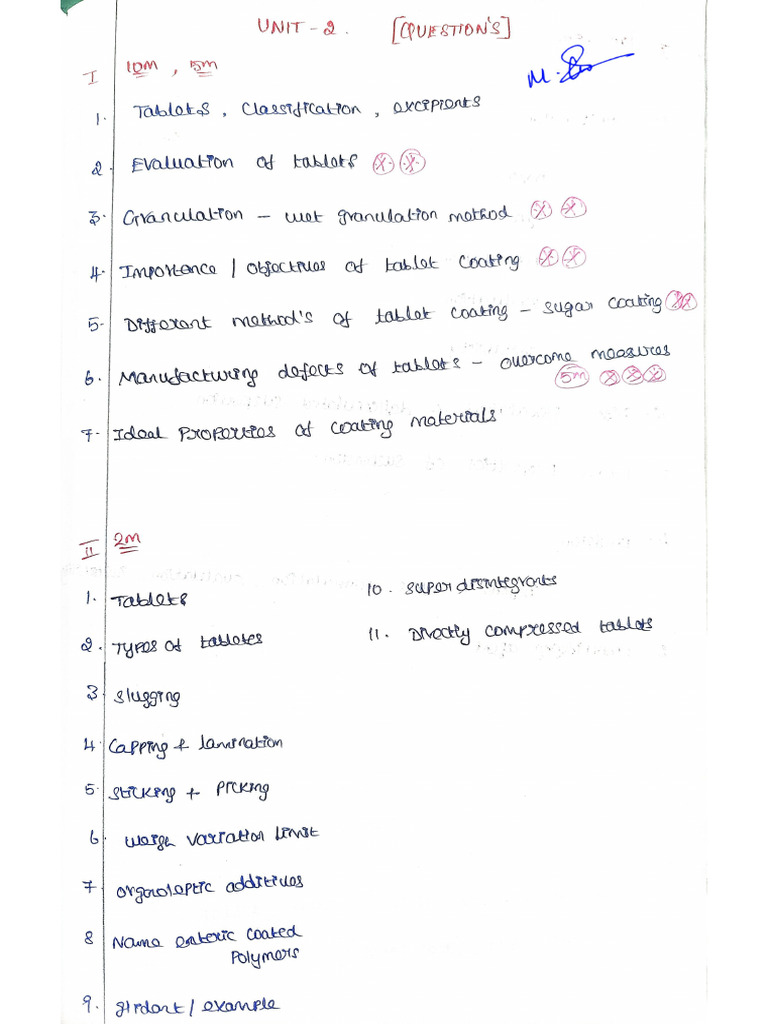 UNIT-2. [QUESTION'S]
I 10m, 5m
1. Tablets, Classification, excipients
2. Evaluation of tablets
3. Granulation - wet granulation method
4. Importence / objectives of tablet coating
5. Different method's of tablet coating - sugar coating
6. Manufacturing defects of tablets - overcome measures
5m
7. Ideal Properties of coating materials
II 2m
1. Tablets
2. Types of tabletes
3. Slugging
4. Capping + lamination
5. Sticking + Picking
6. Weigh variation limit
7. Organoleptic additives
8 Name enteric coated
Polymers
9. / example
10. Super disintegrants
11. Directly compressed tablets